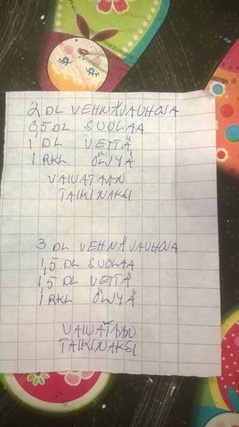 2 DL VEHNÄJAUHOJA
0,5 DL SUOLAA
1 DL VETTÄ
1 RKL ÖLJYÄ
VAIVATAAN
TAIKINAKSI
3 DL VEHNÄJAUHOJA
1,5 DL SUOLAA
1,5 DL VETTÄ
1 RKL ÖLJYÄ
VAIVATAAN
TAIKINAKSI